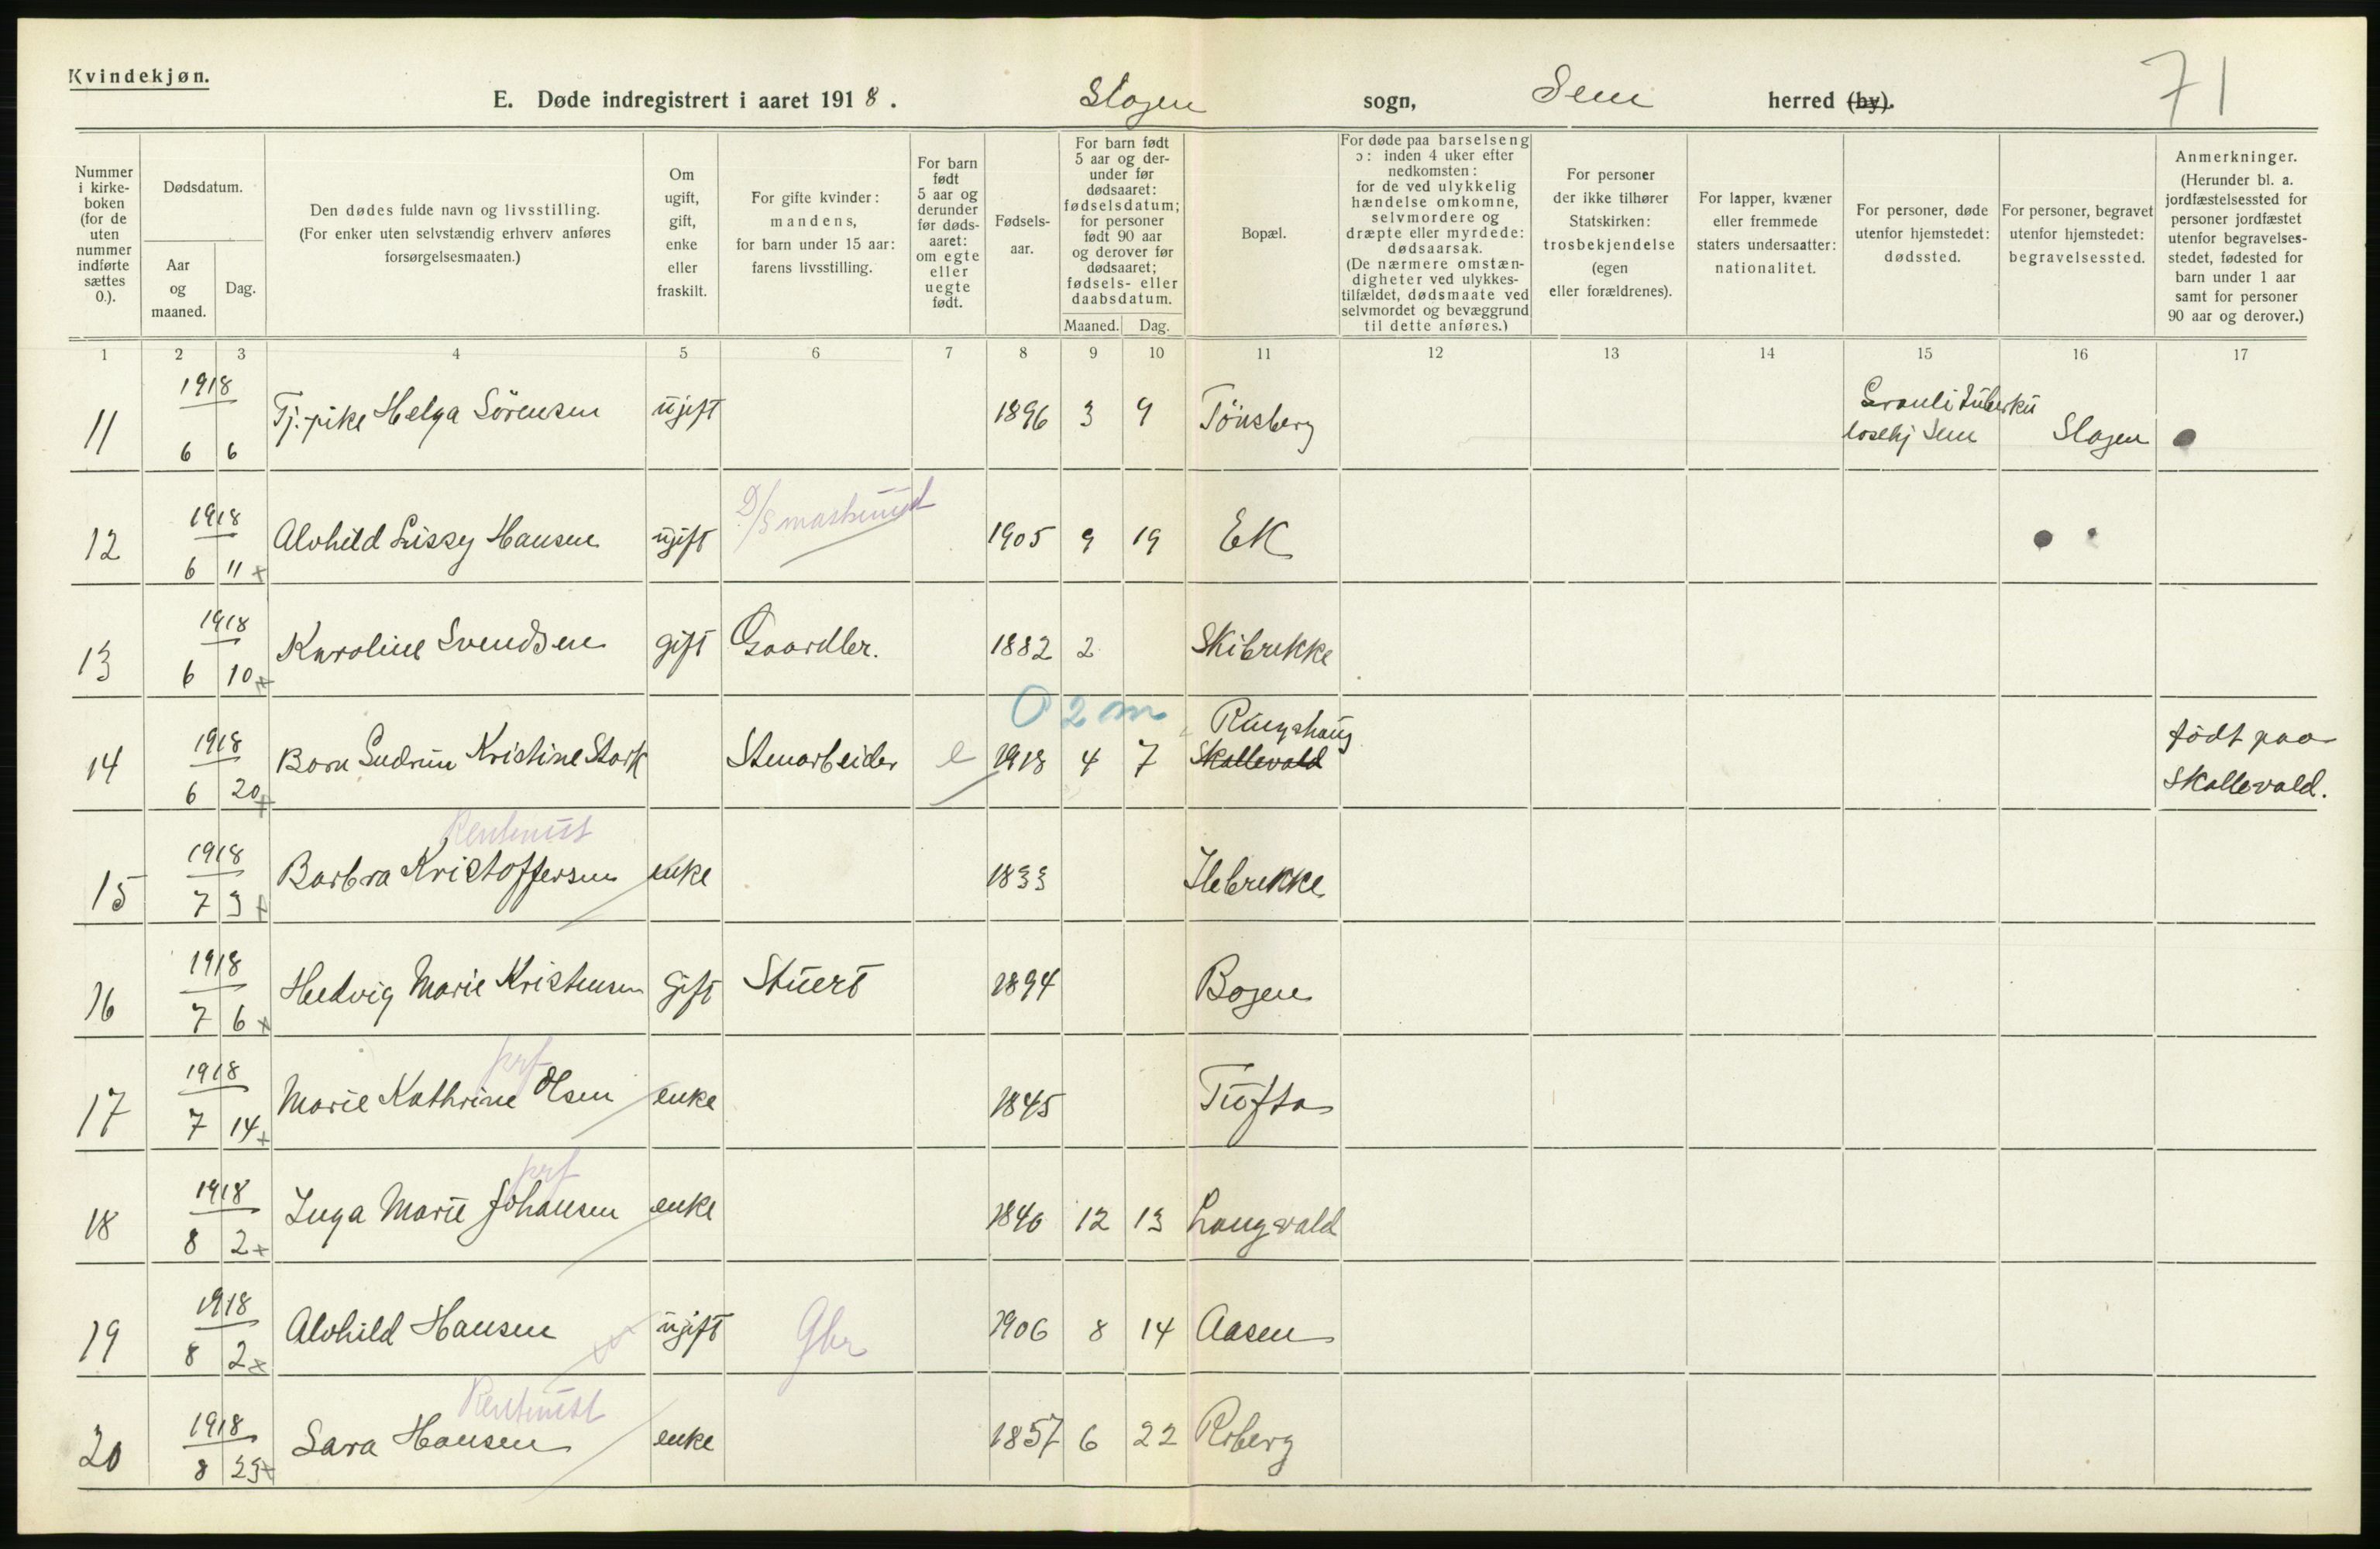 Kvindekjøn.
71
E. Døde indregistrert i aaret 1918. Slagen sogn, Sem herred (by).
Nummer i kirke- boken (for de uten nummer indførte sættes 0.).
Dødsdatum.
Aar og maaned.
Dag.
Den dødes fulde navn og livsstilling.
(For enker uten selvstændig erhverv anføres
forsørgelsesmaaten.)
Om ugift, gift, enke eller fraskilt.
For gifte kvinder:
mandens,
for barn under 15 aar:
farens livsstilling.
For barn født 5 aar og derunder før døds- aaret: om egte eller uegte født.
Fødsels- aar.
For barn født 5 aar og der- under før dødsaaret: fødselsdatum; for personer født 90 aar og derover før dødsaaret; fødsels- eller daabsdatum.
Maaned. Dag.
Bopæl.
For døde paa barselseng
ɔ: inden 4 uker efter
nedkomsten:
for de ved ulykkelig
hændelse omkomne,
selvmordere og
dræpte eller myrdede:
dødsaarsak.
(De nærmere omstæn-
digheter ved ulykkes-
tilfældet, dødsmaate ved
selvmordet og bevæggrund
til dette anføres.)
For personer
der ikke tilhører
Statskirken:
trosbekjendelse
(egen
eller forældrenes).
For lapper, kvæner
eller fremmede
staters undersaatter:
nationalitet.
For personer, døde
utenfor hjemstedet:
dødssted.
For personer, begravet
utenfor hjemstedet:
begravelsessted.
Anmerkninger.
(Herunder bl. a.
jordfæstelsessted for
personer jordfæstet
utenfor begravelses-
stedet, fødested for
barn under 1 aar
samt for personer
90 aar og derover.)
1 2 3 4 5 6 7 8 9 10 11 12 13 14 15 16 17
11 1918 6 6 Tj.pike Helga Sörensen ugift 1896 3 9 Tönsberg Grauli tuberku
losehj Sem Slagen
12 1918 6 11 x Alvhild Lissy Hansen ugift D/S maskinist 1905 9 19 Ek
13 1918 6 10 x Karoline Svendsen gift Gaardbr. 1882 2 Skibrekke
O 2 m
14 1918 6 20 x Barn Gudrun Kristine Stark Stenarbeider e 1918 4 7 Ringshaug
Skallevald født paa
Skallevald.
Rentenist
15 1918 7 3 x Barbra Kristoffersen enke 1833 Ilebrekke
16 1918 7 6 x Hedvig Marie Kristensen gift Stuert 1894 Bogen
prf
17 1918 7 14 x Marie Kathrine Olsen enke 1845 Tufta
prf
18 1918 8 2 x Inga Marie Johansen enke 1846 12 13 Langvald
19 1918 8 2 x Alvhild Hansen ugift Gbr 1906 8 14 Aasen
Rentenist
20 1918 8 23 x Sara Hansen enke 1857 6 22 Roberg